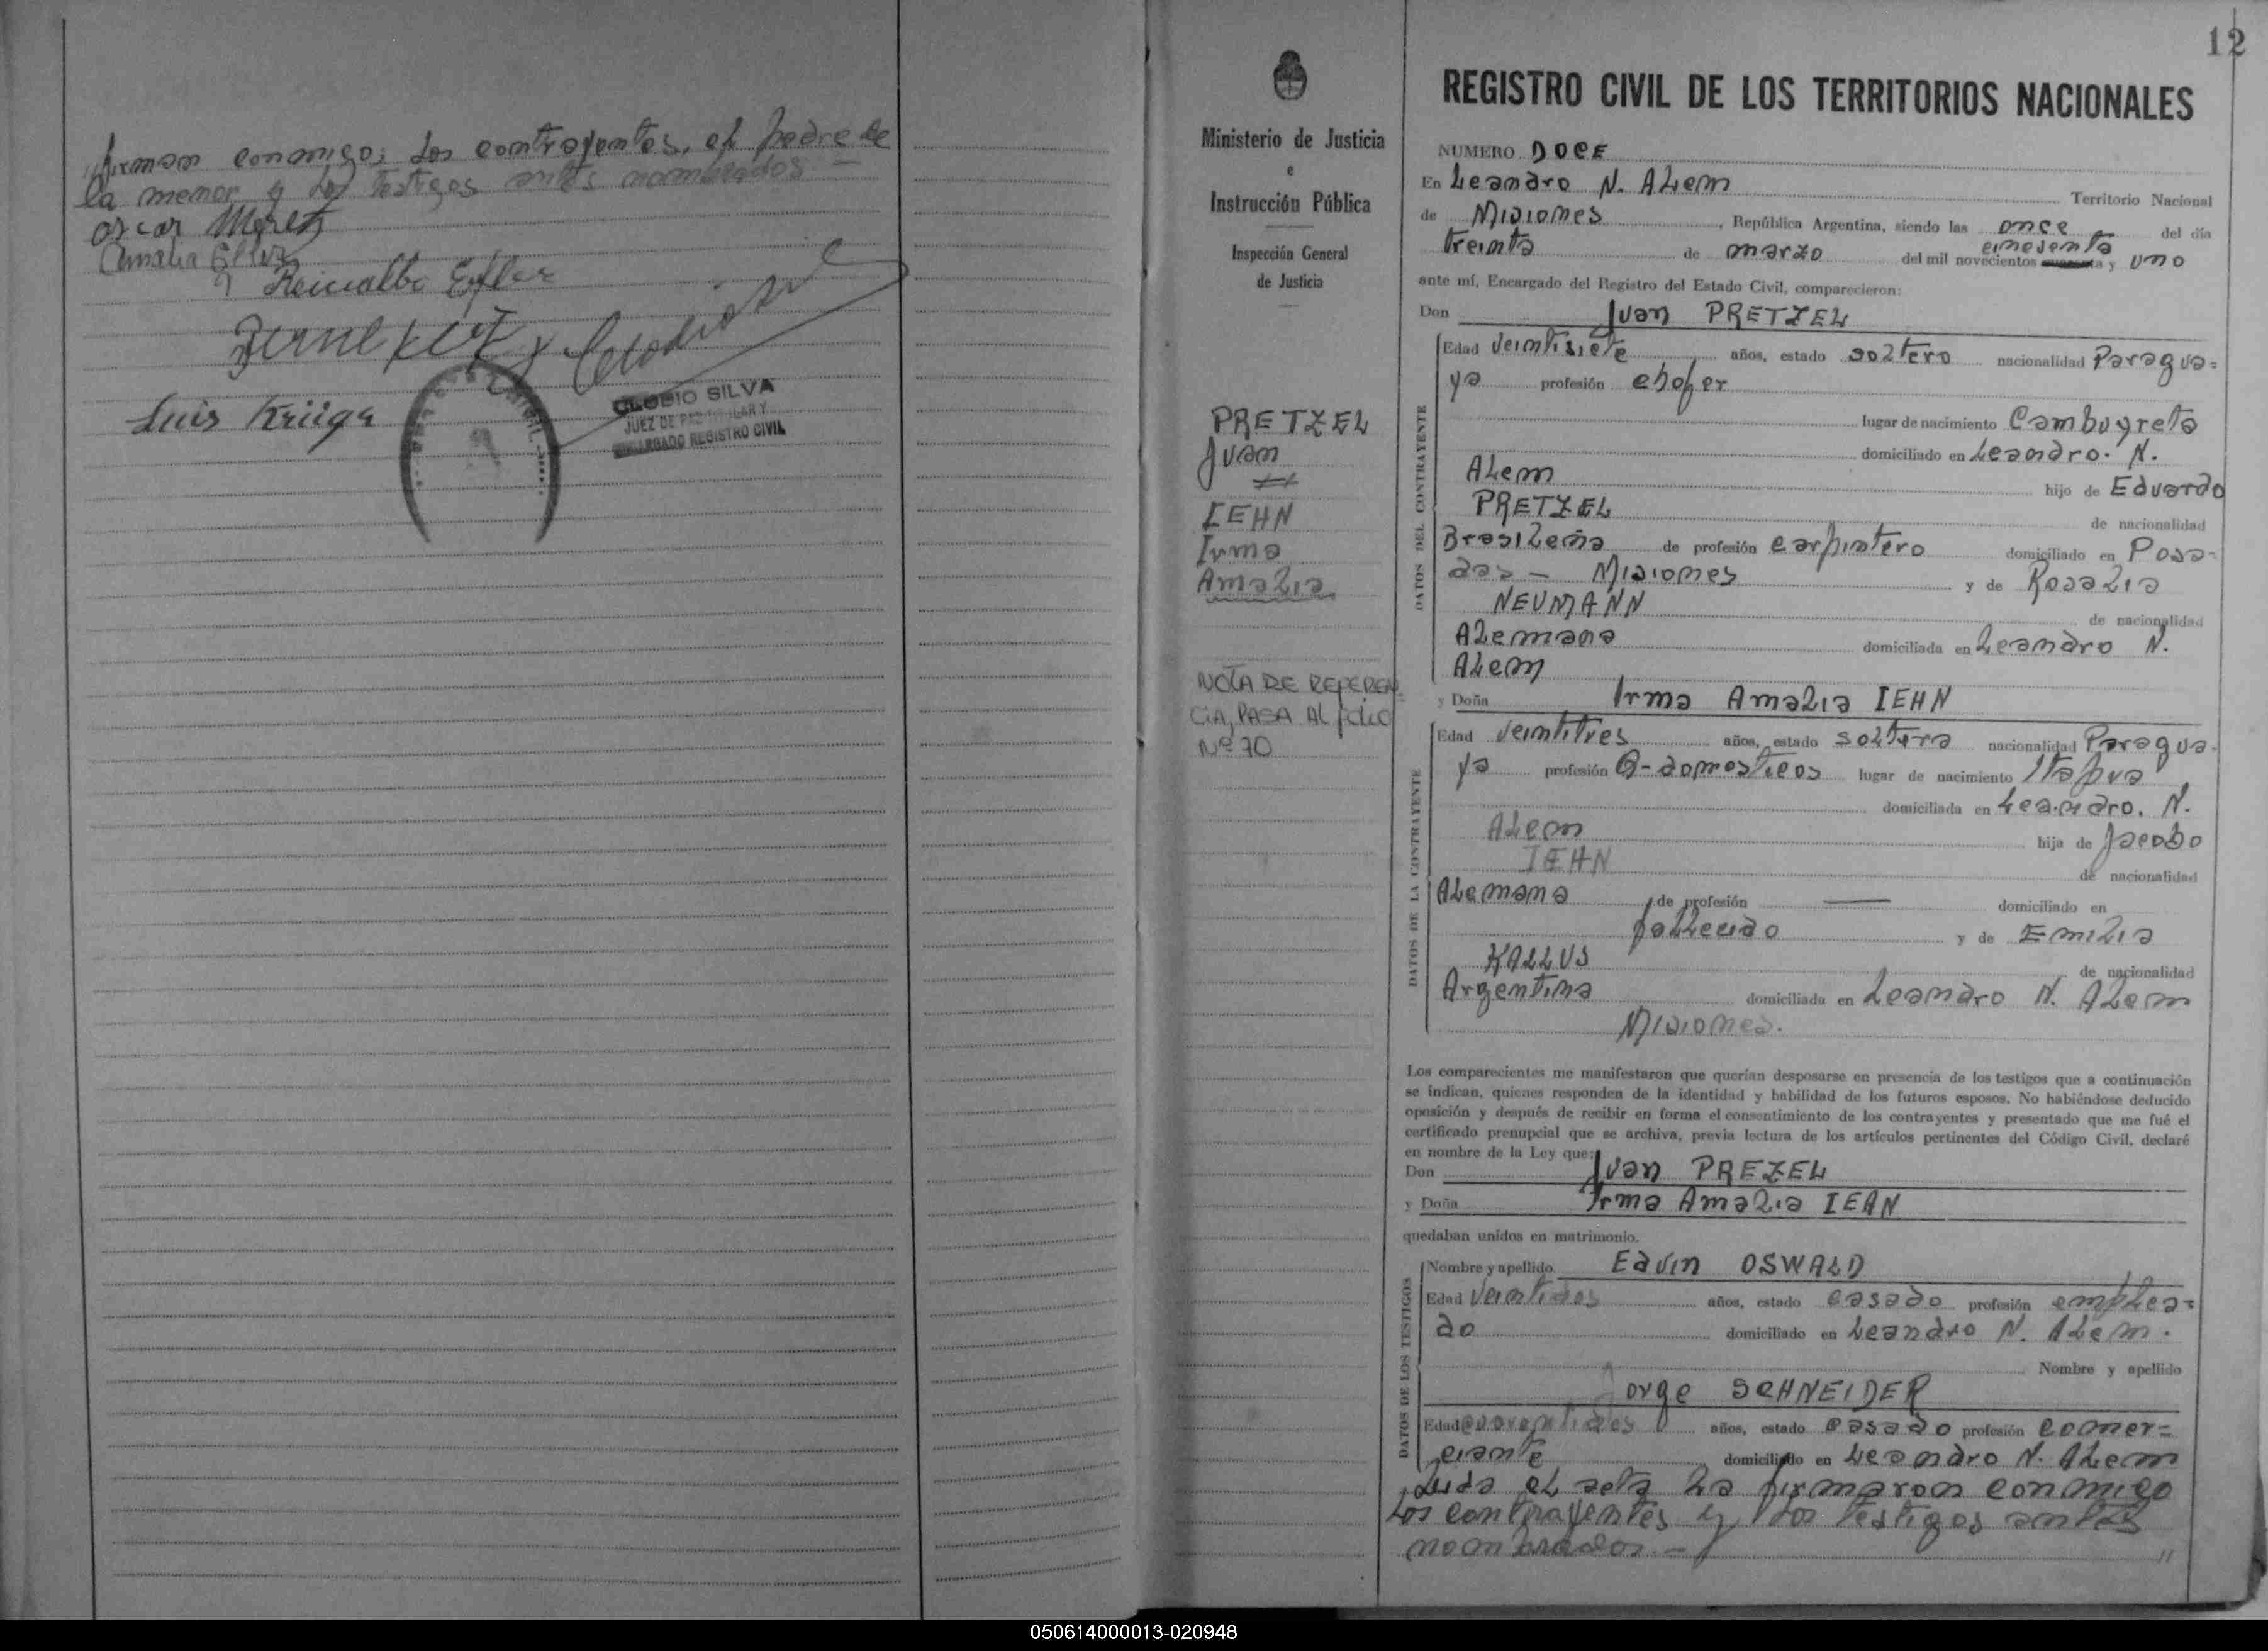 firman conmigo; los contrayentes, el padre de
la menor y los testigos antes nombrados —
oscar
Amalia
Reinaldo
Luis Krüger
CLODIO SILVA
JUEZ DE PAZ TITULAR Y
ENCARGADO REGISTRO CIVIL
12
Ministerio de Justicia
e
Instrucción Pública
Inspección General
de Justicia
PRETZEL
Juan
IEHN
Irma
Amalia
NOTA DE REFEREN
CIA, PASA AL folio
Nº 70
REGISTRO CIVIL DE LOS TERRITORIOS NACIONALES
NUMERO DOCE
En Leandro N. Alem Territorio Nacional
de Misiones, República Argentina, siendo las once del día
treinta de marzo del mil novecientos cincuenta y uno
ante mí, Encargado del Registro del Estado Civil, comparecieron:
Don Juan PRETZEL
DATOS DEL CONTRAYENTE
Edad veintisiete años, estado soltero nacionalidad Paragua=
ya profesión chofer
lugar de nacimiento Cambuyreta
domiciliado en Leandro. N.
Alem hijo de Eduardo
PRETZEL de nacionalidad
Brasileña de profesión carpintero domiciliado en Posa-
das — Misiones y de Rosalia
NEUMANN de nacionalidad
Alemana domiciliada en Leandro N.
Alem
y Doña Irma Amalia IEHN
DATOS DE LA CONTRAYENTE
Edad veintitres años, estado soltera nacionalidad Paragua-
ya profesión Q-domesticos lugar de nacimiento Itapua
domiciliada en Leandro. N.
Alem hija de Jacobo
IEHN de nacionalidad
Alemana de profesión — domiciliado en
fallecido y de Emilia
KALLUS de nacionalidad
Argentina domiciliada en Leandro N. Alem
Misiones.
Los comparecientes me manifestaron que querían desposarse en presencia de los testigos que a continuación
se indican, quienes responden de la identidad y habilidad de los futuros esposos. No habiéndose deducido
oposición y después de recibir en forma el consentimiento de los contrayentes y presentado que me fué el
certificado prenupcial que se archiva, previa lectura de los artículos pertinentes del Código Civil, declaré
en nombre de la Ley que:
Don Juan PREZEL
y Doña Irma Amalia IEHN
quedaban unidos en matrimonio.
DATOS DE LOS TESTIGOS
Nombre y apellido Edvin OSWALD
Edad veintidos años, estado casado profesión emplea=
do domiciliado en Leandro N. Alem.
Nombre y apellido
Jorge SCHNEIDER
Edad cuarentidos años, estado casado profesión comer=
ciante domiciliado en Leandro N. Alem
Leida el acta la firmaron conmigo
los contrayentes y los testigos antes
nombrados. — "
050614000013-020948